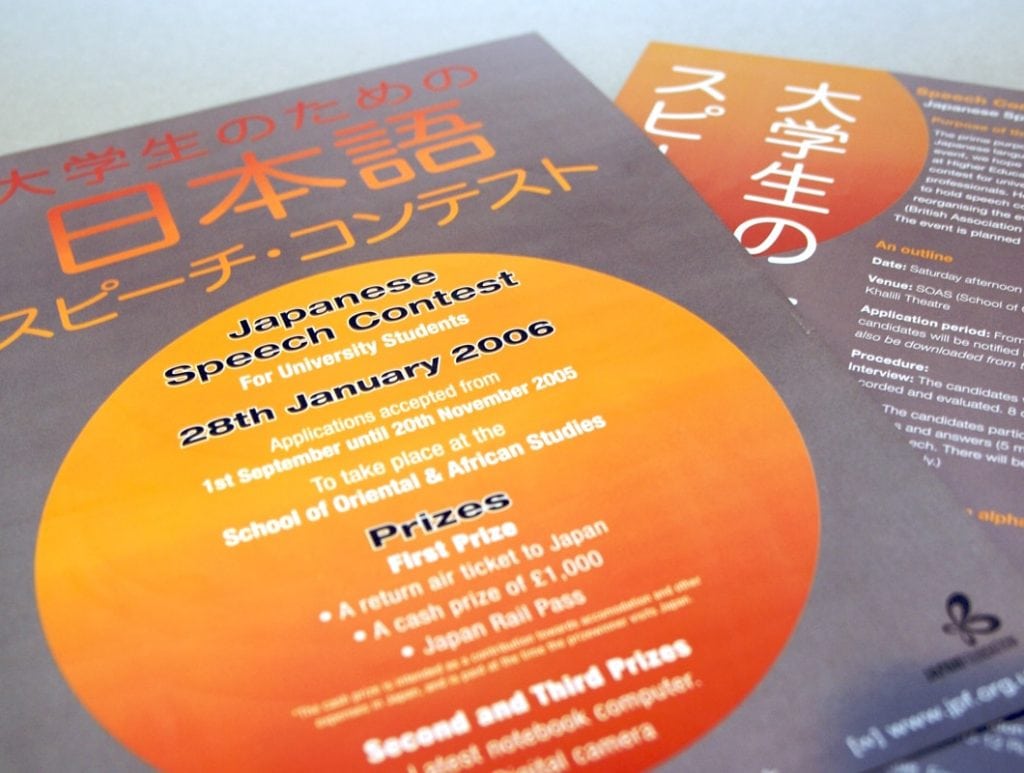 大学生のための
日本語
スピーチ・コンテスト
Japanese
Speech Contest
For University Students
28th January 2006
Applications accepted from
1st September until 20th November 2005
To take place at the
School of Oriental & African Studies
Prizes
First Prize
• A return air ticket to Japan
• A cash prize of £1,000
• Japan Rail Pass
*The cash prize is intended as a contribution towards accomodation and other
expenses in Japan, and is paid at the time the prizewinner visits Japan.
Second and Third Prizes
Latest notebook computer.
Digital camera
JAPAN FOUNDATION
[w] www.jpf.org.
大学生の
スピ
Speech Con
Japanese Sp
Purpose of th
The prime purpo
Japanese langu
event, we hope
at Higher Educa
contest for unive
professionals. H
to hold speech c
reorganising the e
(British Association
The event is planned
An outline
Date: Saturday afternoon
Venue: SOAS (School of
Khalili Theatre
Application period: From
candidates will be notified
also be downloaded from
Procedure:
Interview: The candidates
corded and evaluated. 8
The candidates partic
s and answers (5 m
ech. There will be
y.)
alpha